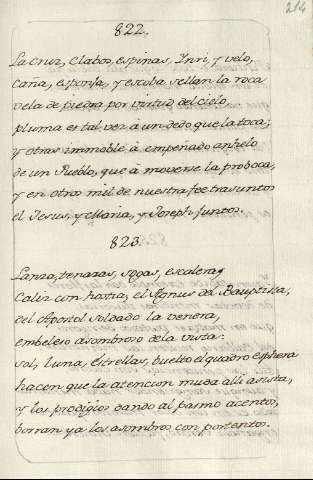 214
822.
La Cruz, Clabos, espinas, Inri, y velo,
caña, esponja, y escoba sellan la roca
vela de piedra por virtud del cielo
pluma es tal vez â un dedo que la toca;
y otras immoble â empeñado anhelo
de un Pueblo, que â moverse la proboca,
y en otros mil de nuestra fee trasuntos
el Jesus, y Maria, y Joseph juntos.
823.
Lanza, tenazas, sogas, escalera,
Caliz con hostia, el Agnus del Bauptista,
del Apostol soldado la venera,
embeleso asombroso de la vista:
sol, luna, estrellas, buelto el quadro esphera
hacen que la atencion muda alli asista,
y los prodigios dando al pasmo acentos,
borran ya los asombros con portentos.